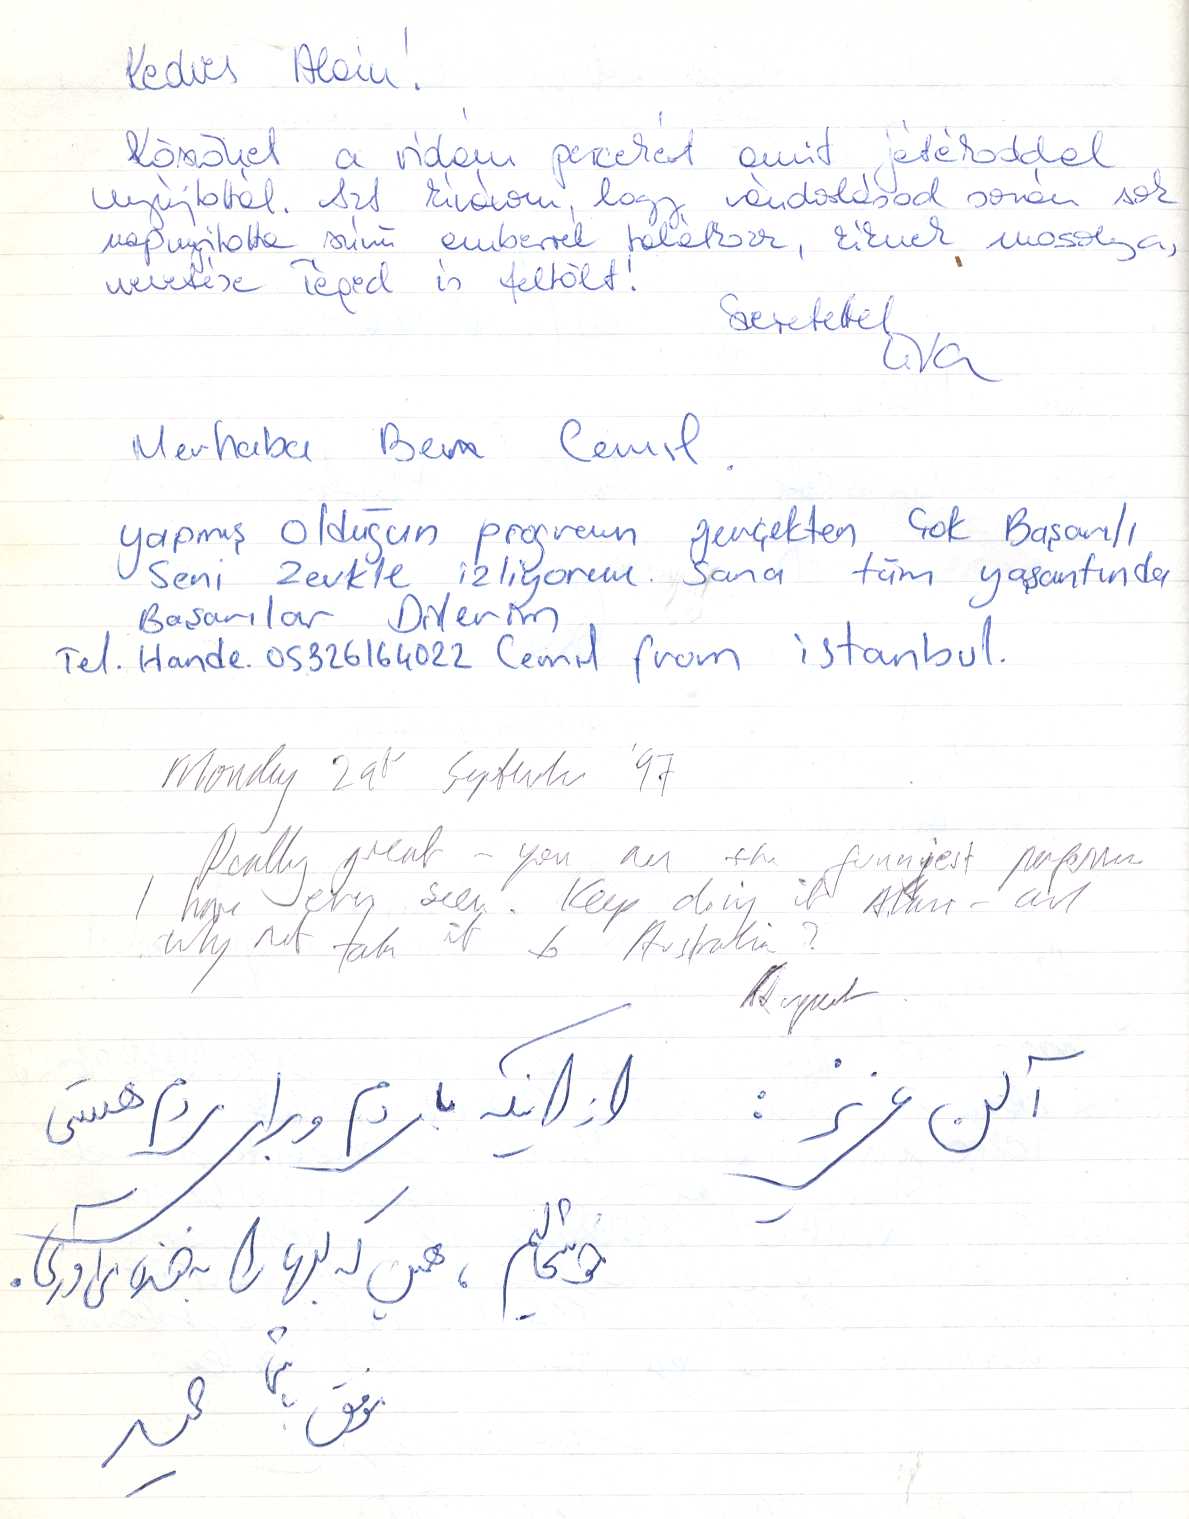 Kedves Alain!
Köszönet a vidám percekért amit játékoddal
nyújtottál. Azt kívánom, hogy vándorlásod során sok
napnyitotta színű emberrel találkozz, kiknek mosolya,
nevetése Téged is feltölt!
Szeretettel
Éva
Merhaba Ben Cemil.
yapmış Olduğun program gerçekten Çok Başarılı
Seni Zevkle izliyorum. Sana tüm yaşantında
Başarılar Dilerim
Tel. Hande. 05326164022 Cemil from istanbul.
Monday 29th September '97
Really great - you are the funniest performer
I have ever seen. Keep doing it Alain - and
why not take it to Australia?
Rupert
آلن عزیز: از اینکه با مردم و برای مردم هستی
خوشحالیم، همین که لبها را به خنده می‌آوری.
موفق باشی
حمید